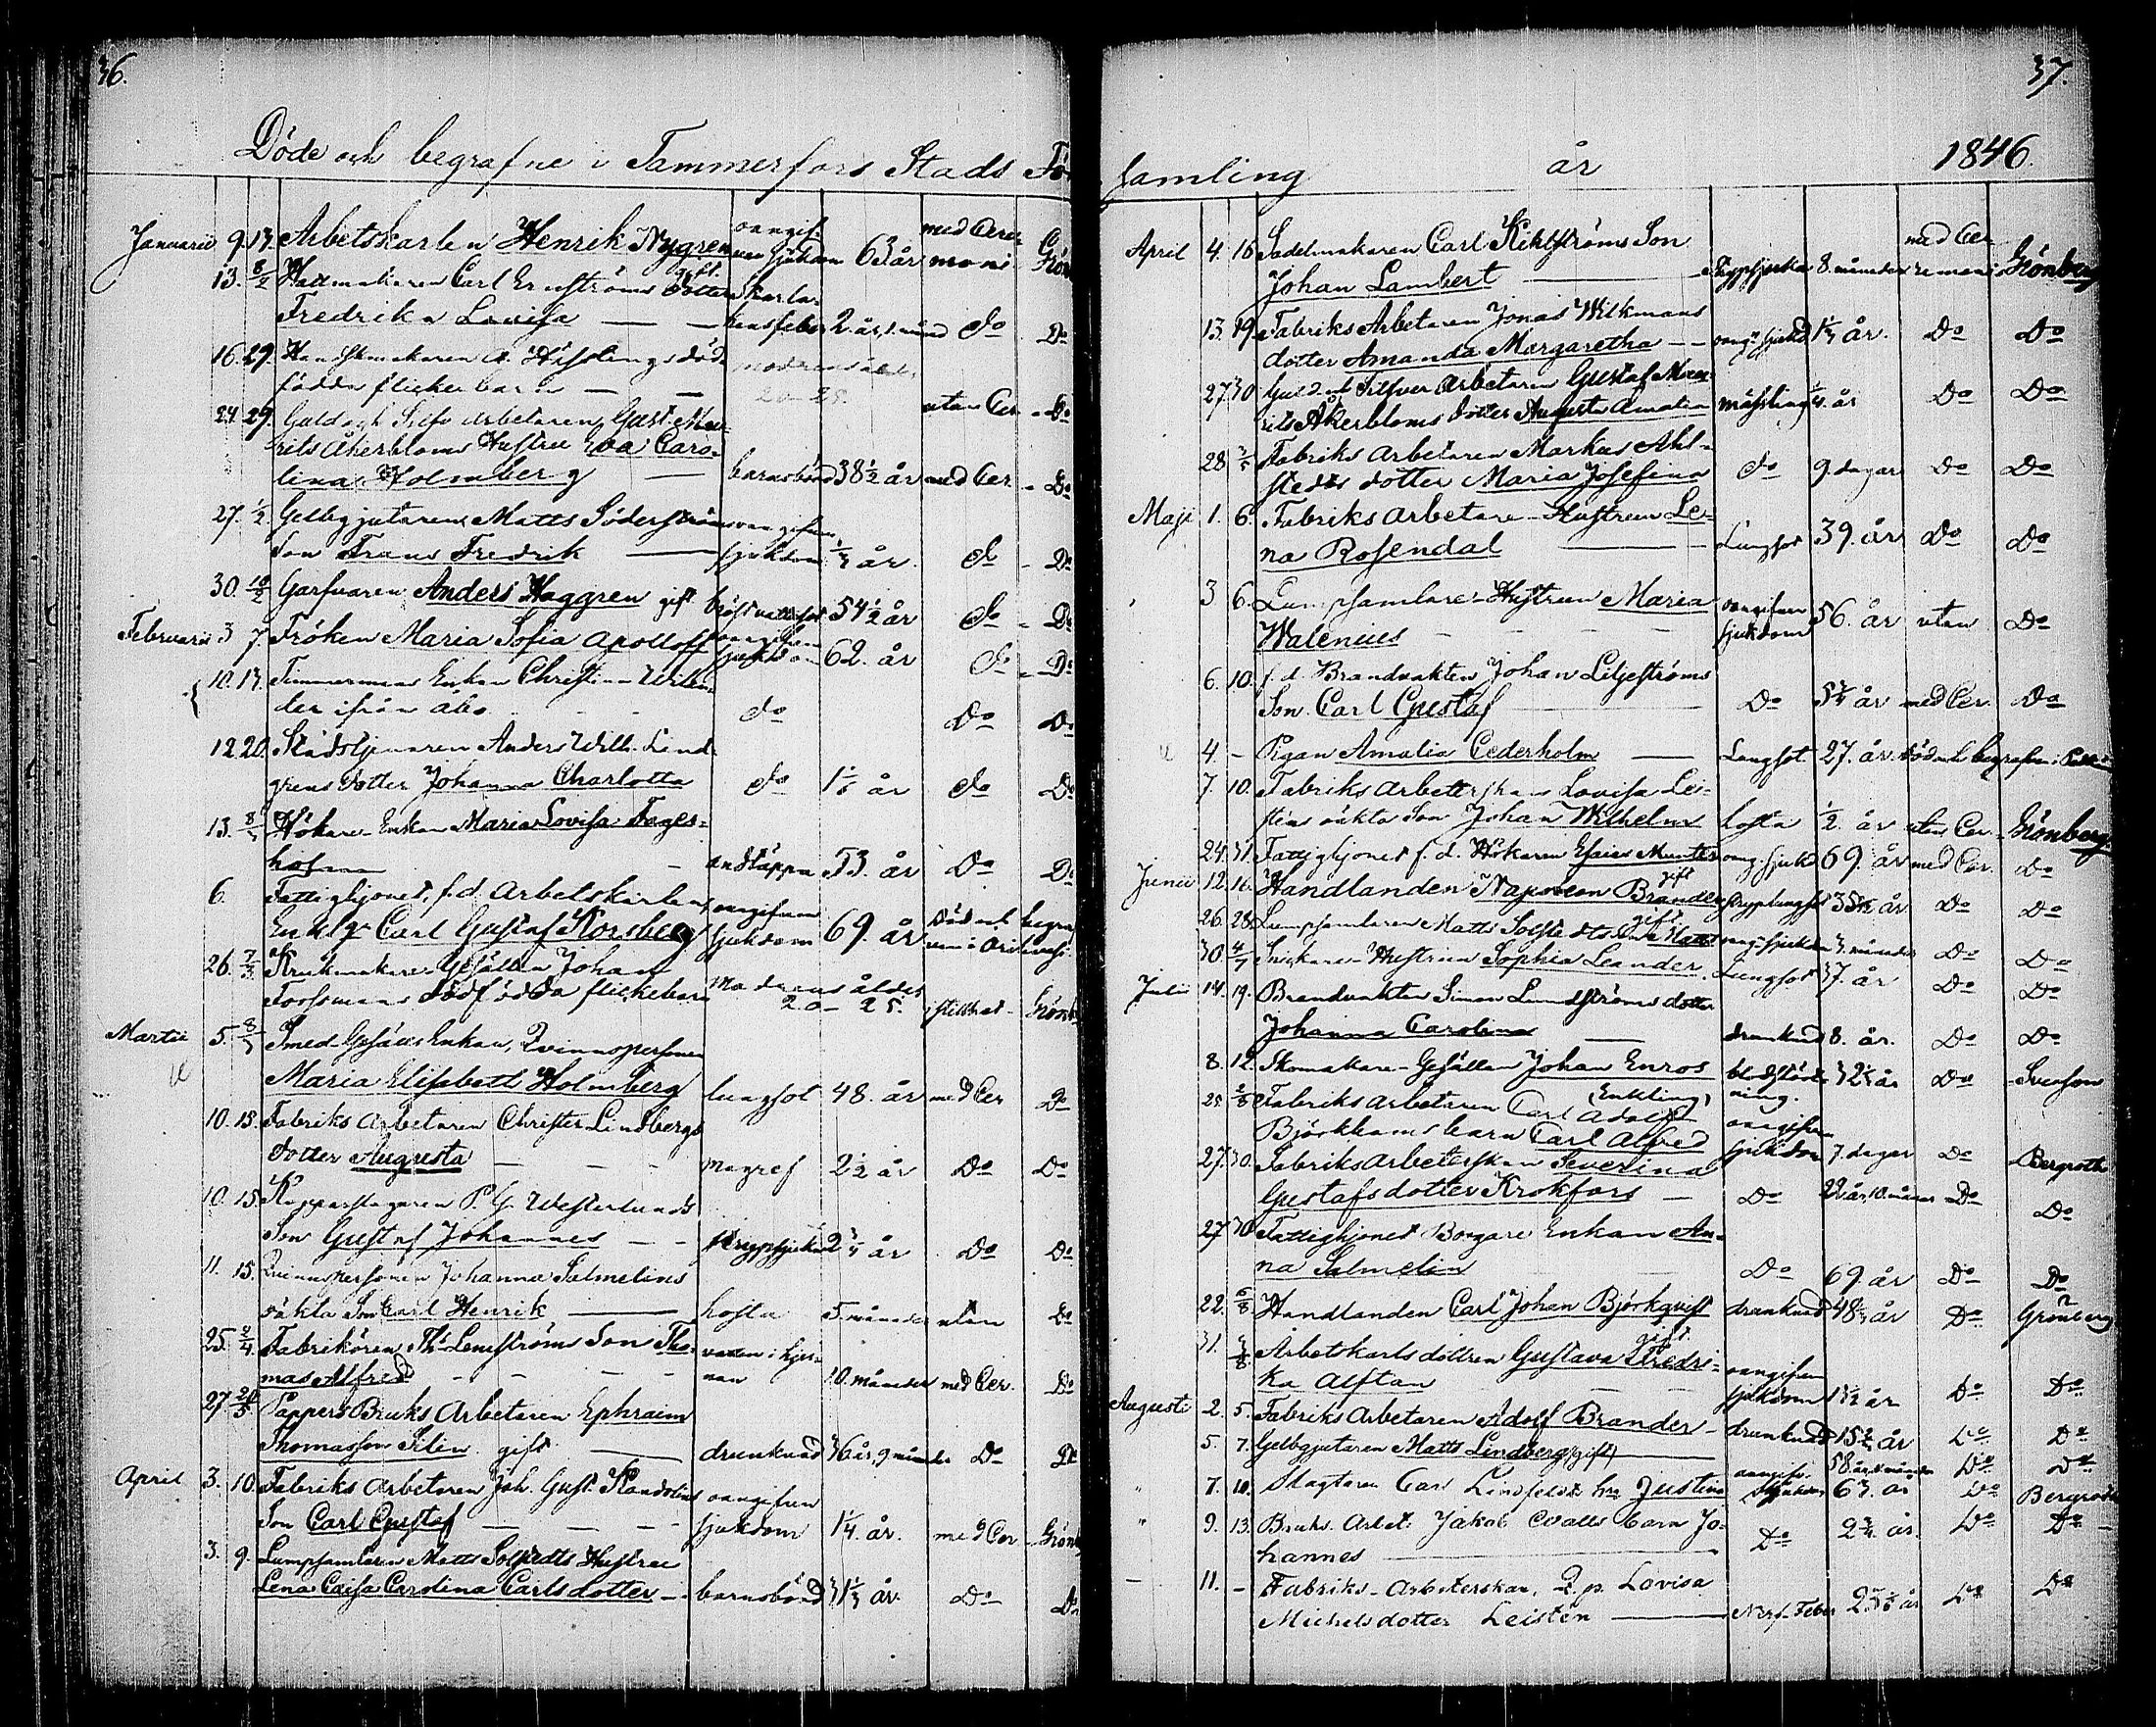 36.
Döde och begrafne i Tammerfors Stads För
Januarii 9. 13. Arbetskarlen Henrik Nygren oangif- 63 år med Cere-
gift. ven sjukdom moni Grön
13. 8/2 Hattmakaren Carl Ernströms dotter skarla-
Fredrika Lovisa — — kansfeber 2 år, 1. månd do Do
16. 29. Handskmakaren A. Hisslings död- modrens ålder
födda flickebarn — — 20–25. utan Cer - Do
24. 29. Guld och Silfv. arbetaren Gust. Mau-
rits Åkerbloms Hustru Eva Caro-
lina Holmberg — barnsbörd 38 1/2 år med Cer - Do
27. 1/2 Gelbgjutaren Matts Söderströms oangifven
Son Frans Fredrik — sjukdom 1/3 år. do - Do
30. 10/2 Garfvaren Anders Haggren gift bröstvattusot 54 1/2 år do - Do
Februarii 3 7. Fröken Maria Sofia Apolloff oangifven sjukdom 62. år do - Do
10. 13. Timmerman Enkan Christina
der ifrån Åbo do Do Do
12. 20. Stadstjenaren Anders Wilh. Lind-
grens dotter Johanna Charlotta do år do Do
13. 8/3 Hökare-Enkan Maria Lovisa Fages-
holm — andtäppa 53. år Do Do
6. Fattighjonet, f.d. Arbetskarlen,
Enkl. Carl Gustaf Korsberg oangifven sjukdom 69. år Död och begraf-
ven i Orihvesi.
26. 7/3 Krukmakare-Gesällen Johan
Forssmans dödfödda flickebarn Modrens ålder 20–25. i stillhet Grönb
Martii 5. 8/3 Smed-Gesälls Enkan, Qvinnspersonen
Maria Elisabeth Holmberg lungsot 48. år med Cer Do
10. 15. Fabriks Arbetaren Christer Lindbergs
dotter Augusta — — — magref 2 1/2 år Do Do
10. 15. Kopparslagaren P. G. Westerlunds
Son Gustaf Johannes — — strypsjukan 2 3/4 år Do Do
11. 15. Qvinnspersonen Johanna Salmelins
oäkta Son Carl Henrik — hosta 5. månader utan Do
25. 2/4 Fabrikören Th: Lenströms Son Tho- vatten i hjer-
mas Alfred — — — — nan 10. månader med Cer. Do
27 Pappers Bruks Arbetaren Ephraim
Thomasson Silén. gift — drunknad 36 år, 9 månader Do Do
April 3. 10. Fabriks Arbetaren Joh. Gust. Kandolins oangifven
Son Carl Gustaf — — — sjukdom 1 1/4. år. med Cer - Grönb
3. 9. Lumpsamlaren Matts Solstedts Hustru
Lena Caisa Carolina Carlsdotter — barnsbörd 31 1/3 år. Do Do
37.
samling år 1846.
April 4. 16 Sadelmakaren Carl Kihlströms Son med Cer-
Johan Lambert — Strypsjukan 8. månader remoni Grönberg
13. 19. Fabriks Arbetaren Jonas Wilkmans
dotter Amanda Margaretha — — oang. sjukd år. Do Do
27 30 Guld och Silfver Arbetaren Gustaf Mau-
rits Åkerbloms dotter Augusta Amalia mässling 1/4. år Do Do
28 3/5 Fabriks Arbetaren Markus Ahl-
stedts dotter Maria Josefina do 9. dagar Do Do
Maji 1. 6. Fabriks Arbetare-Hustrun Le-
na Rosendal — Lungsot 39. år Do Do
3 6. Lumpsamlare-Hustrun Maria oangifven
Walenius — — — — sjukdom 56. år utan Do
6. 10. f. d. Brandvakten Johan Liljeströms
Son Carl Gustaf — Do år med Cer. Do
4. - Pigan Amalia Cederholm — Lungsot 27. år. död och begrafven i
7. 10. Fabriks Arbeterskans Lovisa Lei-
sténs oäkta Son Johan Wilhelm hosta 1/2. år utan Cer. Grönberg.
24. 31. Fattighjonet f. d. Hökaren Esaias Munter oang. sjukd 69. år med Cer. Do
Junii 12. 16. Handlanden Napoleon Brander gift år Do Do
26. 28. Lumpsamlaren Matts Solstedts Son Matts oang. sjukdom 3. månader Do Do
30 4/7 Snickare-Hustrun Sophia Leander Lungsot 37. år Do Do
Julii 14. 19. Brandvakten Simon Lundströms dotter
Johanna Carolina — drunknad 8. år. Do Do
8. 12. Skomakare-Gesällen Johan Enros blodstört- 32 år Do Svenson
(Enkling) ning.
25. 2/8 Fabriks Arbetaren Carl Adolf
Björkboms barn Carl Alfred oangifven sjukdom 7. dagar Do Bergroth
27. 30. Fabriks Arbeterskan Severina
Gustafsdotter Krokfors — Do 22 år, 10. månader Do Do
27 30 Fattighjonet Borgare Enkan An-
na Salmelin Do 69. år Do Do
22. 6/8 Handlanden Carl Johan Björkqvist drunknad 48 år Do Grönberg
gift.
31. 5/8 Arbetskarls döttren Gustava Fredri- oangifven
ka Alftan — — — sjukdom 1 1/2 år Do Do
Augusti 2. 5. Fabriks Arbetaren Adolf Brander — drunknad 15 år Do Do
5. 7. Gelbgjutaren Matts Lindberg (gift) — 58 år, månader Do Do
" 7. 10. Slagtaren Carl Lindfeldts hu Justina oangifv. sjukdom 63. år Do Bergroth
" 9. 13. Bruks. Arbet: Jakob Cvalls barn Jo-
hannes — Do 2 3/4 år. Do Do
— 11. - Fabriks-Arbeterskan, Q. p. Lovisa
Michelsdotter Leistén — Nerf-Feber år Do Do